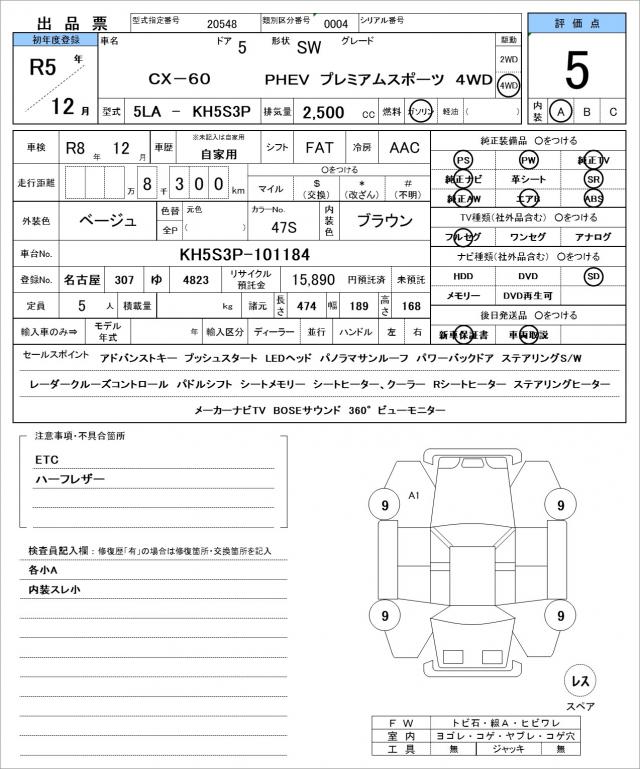 出品票 型式指定番号 20548 類別区分番号 0004 シリアル番号 評価点
初年度登録 車名 ドア 5 形状 SW グレード 駆動
R5 年 CX-60 PHEV プレミアムスポーツ 4WD 2WD 5
4WD
12 月 型式 5LA - KH5S3P 排気量 2,500 cc 燃料 ガソリン 軽油 ( ) 内装 A B C
車検 R8 年 12 月 車歴 ※未記入は自家用 自家用 シフト FAT 冷房 AAC 純正装備品 〇をつける
PS PW 純正TV
走行距離 万 8 千 3 0 0 km 〇をつける
マイル $ (交換) * (改ざん) # (不明)
純正ナビ 革シート SR
純正AW エアB ABS
外装色 ベージュ 色替 元色 全P ( ) カラーNo. 47S 内装色 ブラウン
TV種類(社外品含む) 〇をつける
フルセグ ワンセグ アナログ
車台No. KH5S3P-101184 ナビ種類(社外品含む) 〇をつける
登録No. 名古屋 307 ゆ 4823 リサイクル預託金 15,890 円預託済 未預託 HDD DVD SD
定員 5 人 積載量 kg 諸元 長さ 474 幅 189 高さ 168 メモリー DVD再生可
後日発送品 〇をつける
輸入車のみ⇒ モデル年式 年 輸入区分 ディーラー 並行 ハンドル 左 右 新車保証書 車両取説
セールスポイント アドバンストキー プッシュスタート LEDヘッド パノラマサンルーフ パワーバックドア ステアリングS/W
レーダークルーズコントロール パドルシフト シートメモリー シートヒーター、クーラー Rシートヒーター ステアリングヒーター
メーカーナビTV BOSEサウンド 360°ビューモニター
注意事項・不具合箇所
ETC
ハーフレザー
検査員記入欄:修復歴「有」の場合は修復箇所・交換箇所を記入
各小A
内装スレ小
A1
9 9
9 9
レス
スペア
FW トビ石・線A・ヒビワレ
室内 ヨゴレ・コゲ・ヤブレ・コゲ穴
工具 無 ジャッキ 無